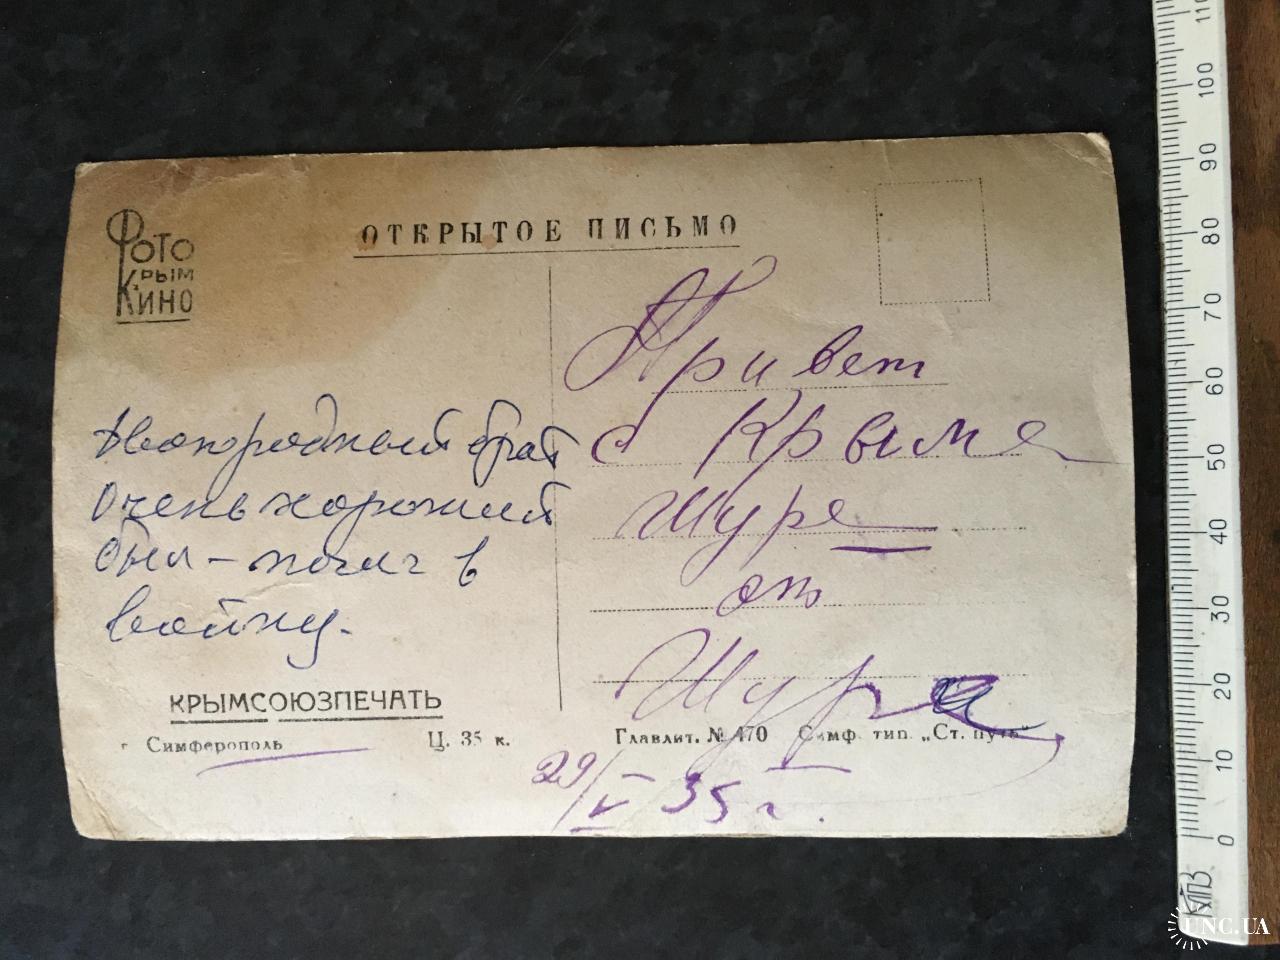 Фото
Крым
Кино
ОТКРЫТОЕ ПИСЬМО
Привет
с Крыма
Шуре
от
Шура
29/V 35 г.
Двоюродный брат
очень хороший
был – погиг в
войну.
КРЫМСОЮЗПЕЧАТЬ
г Симферополь
Ц. 35 к.
Главлит. № 470 Симф. тип. „Ст. путь"
0 10 20 30 40 50 60 70 80 90 100 110
КПЗ
UNC.UA